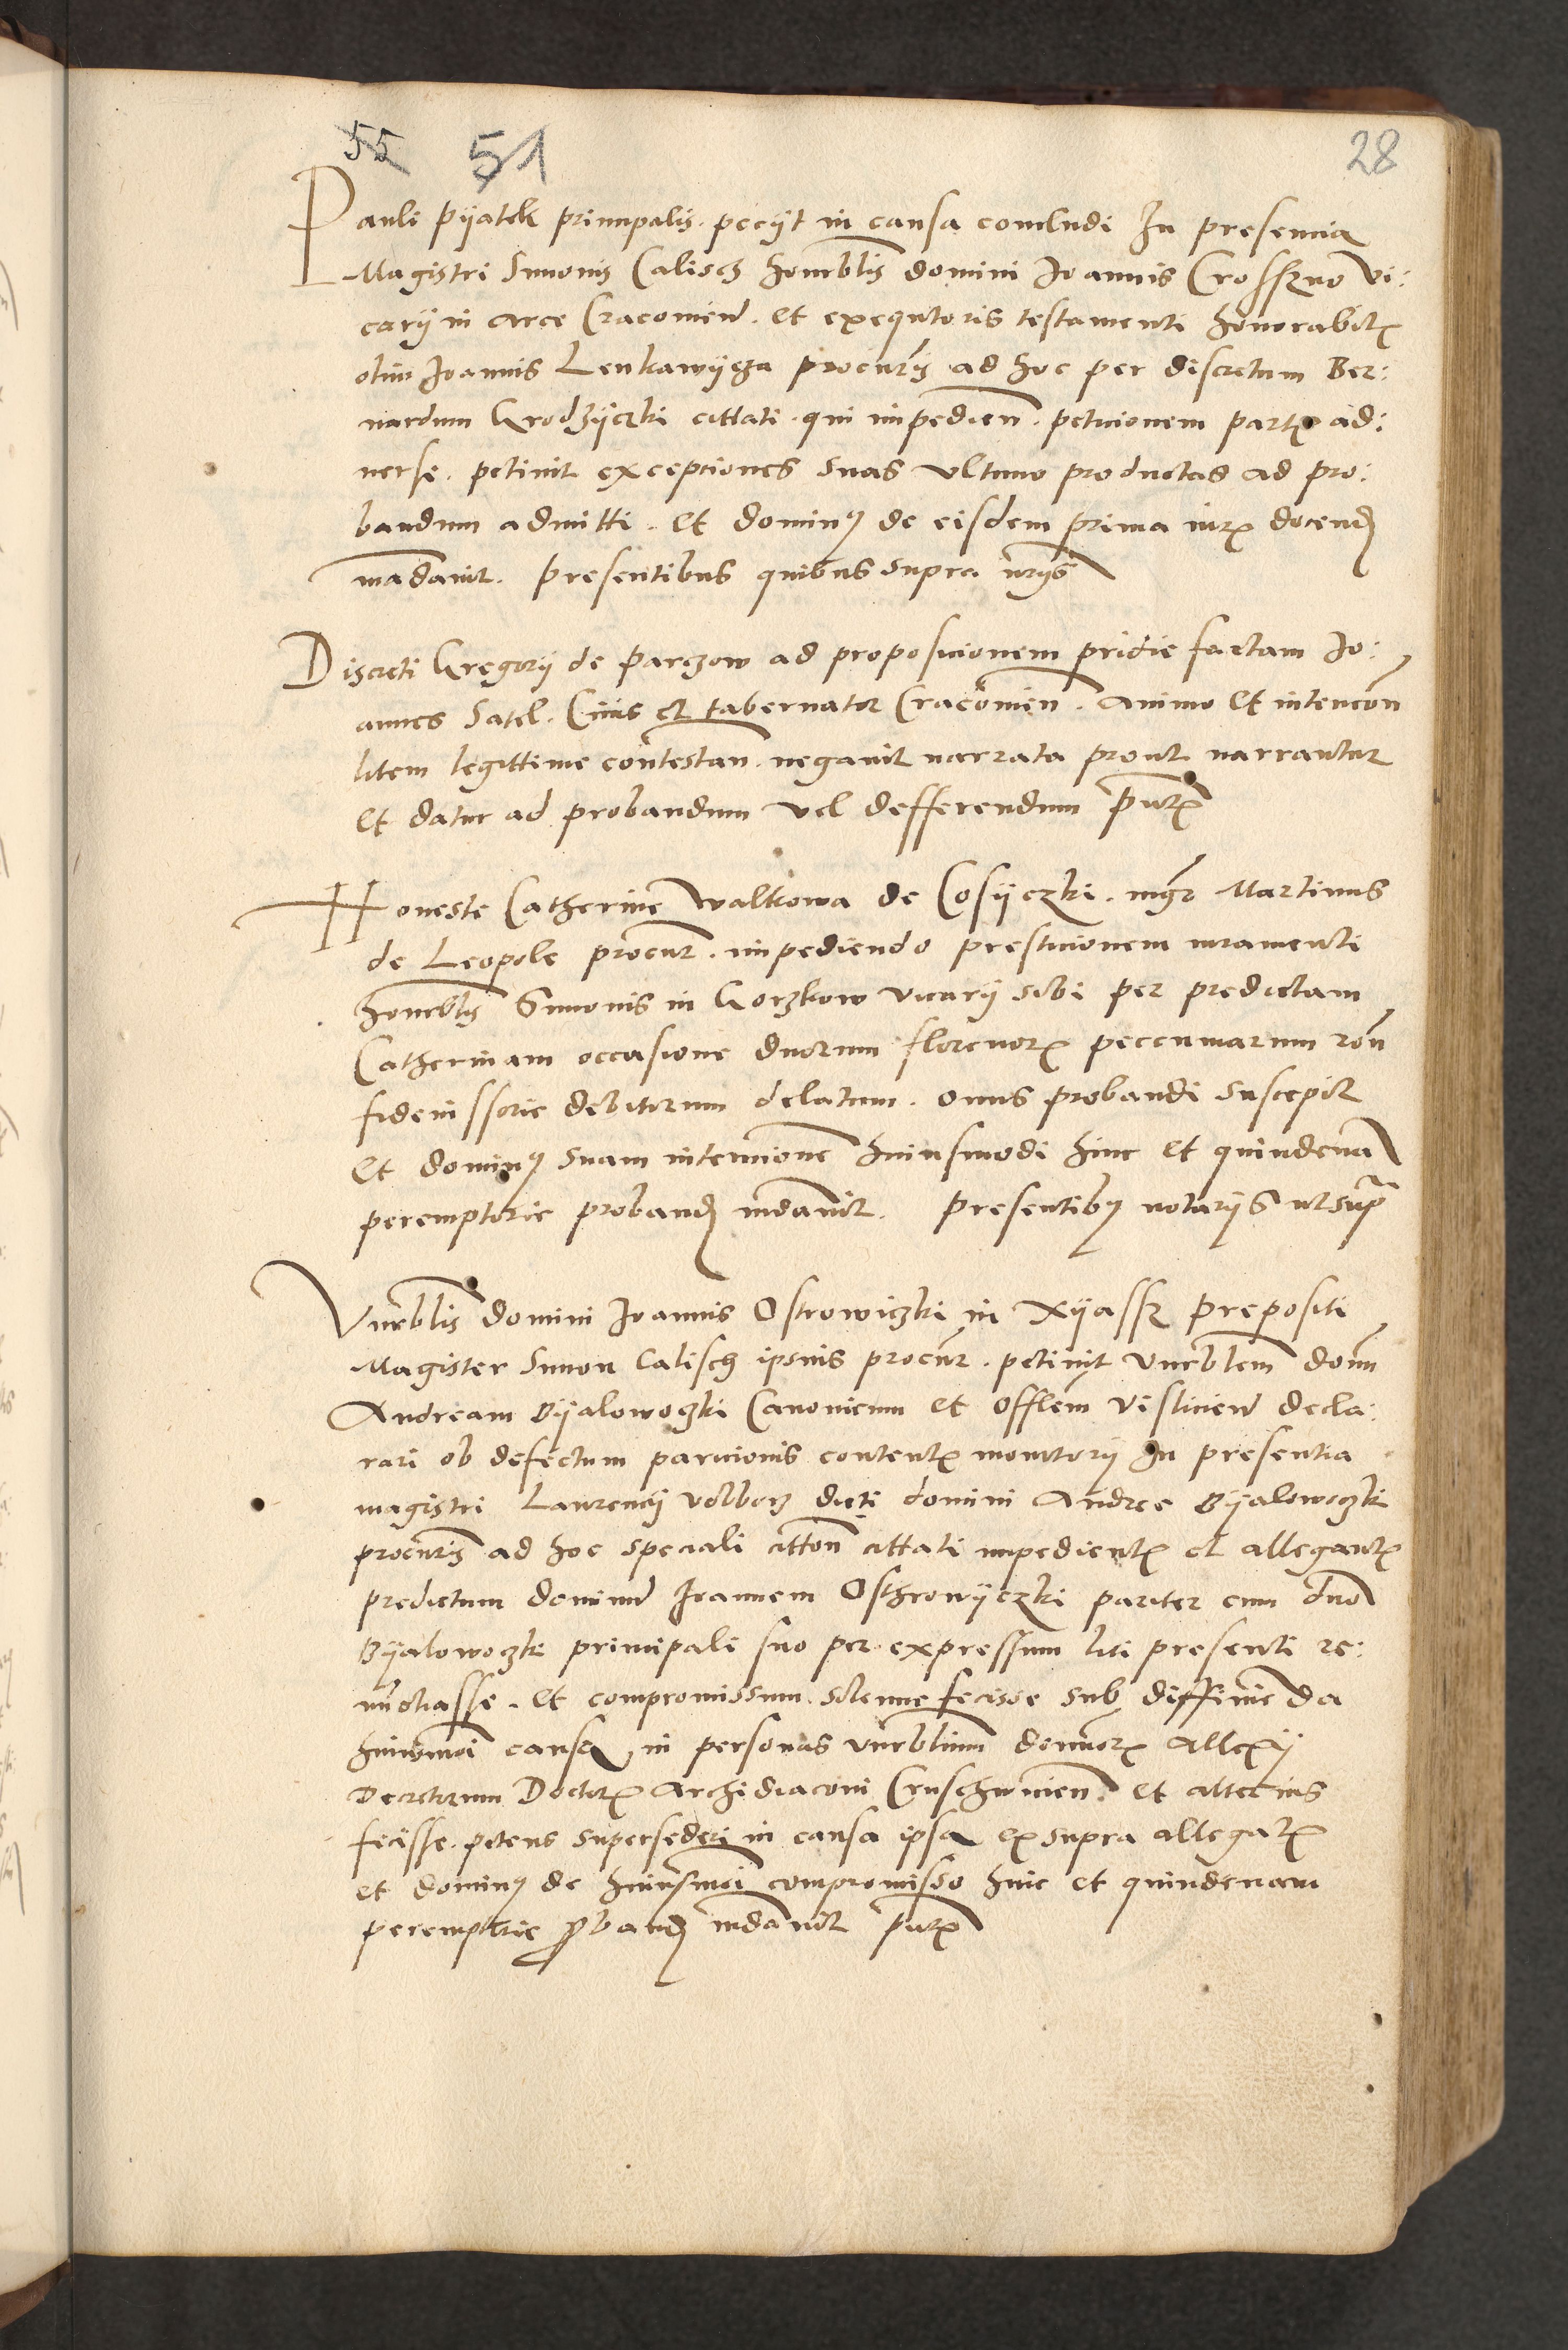 55 51 28
Pauli Pyatek principalis. peciit in causa concludi In presencia
Magistri Simonis Calisch honrblis domini Ioannis Crosszno vi:
carii in arce Cracouien. et exequtoris testamenti honorabil
olim Ioannis Lenkawycza procurris ad hoc per discretum Ber:
nardum Grodzyczki cittati. qui impedien. peticionem partis ad:
uerse. petiuit exceptiones suas ultimo productas ad pro:
bandum admitti. et dominus de eisdem prima iuris docend
madauit. presentibus quibus supra nriis
Discreti Gregorii de Parczow ad proposicionem pridie factam Io:
annes Satel. Ciuis et tabernator Cracouien. animo et intencon
litem legittime contestan. negauit narrata prout narrantur
et datur ad probandum vel defferendum putr
Honeste Catherine Walkowa de Cosyczki. mgr Martinus
de Leopole procur. impediendo prestacionem iuramenti
honrblis Simonis in Gorzkow vicarii sibi per predictam
Catherinam occasione duorum florenorum peccuniarum ron
fideiussorie debitorum delatum. onus probandi suscepit
et dominus suam intencione huiusmodi hinc et quindena
peremptorie proband mdauit. Presentibus notariis ut supr
Vnrblis domini Ioannis Ostrowiczki in Xyassz prepositi
Magister Simon Calisch ipsius procur. petiuit vnrblem domn
Andream Byalowoczki Canonicum et Offlem Visliciens decla:
rari ob defectum paricionis contentorum monitorii In presentia
magistri Laurencii Volborz dicti domini Andree Byalowoczki
procuris ad hoc speciali citton cittati impedientis et allegantis
predictum dominum Ioannem Osthrowyczki pariter cum dno
Byalowoczki principali suo per expressum liti presenti re:
nunctiasse. et compromissum solenne fecisse sub diffinienda
huiusmoi causa in personas vnrblium dominorum Allexii
Decretorum Doctoris Archidiaconi Cruschuicien. et alterius
fecisse. petens supersederi in causa ipsa ex supra allegatis
et dominus de huiusmoi compromisso hinc et quindenam
peremptorie proband mdauit putr